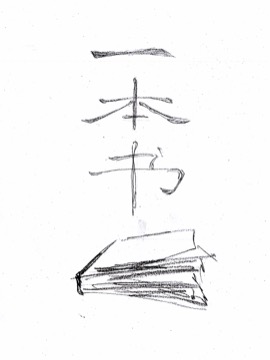 一
本
书